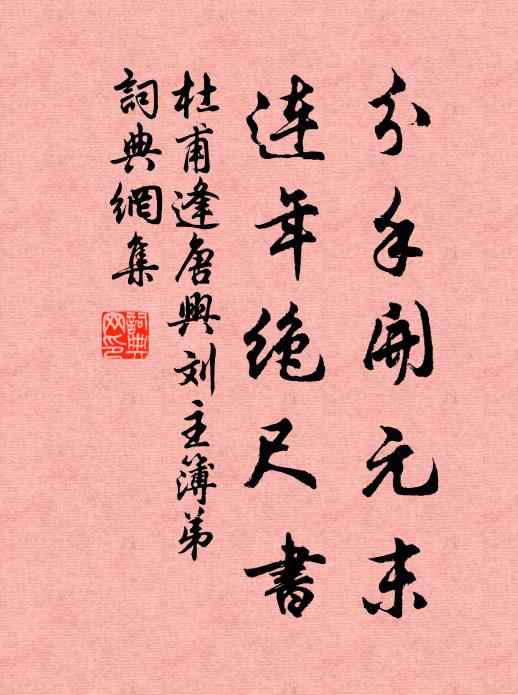 分手開元末
連年絶尺書
杜甫逢唐興刘主簿弟
詞典網集
詞典網印